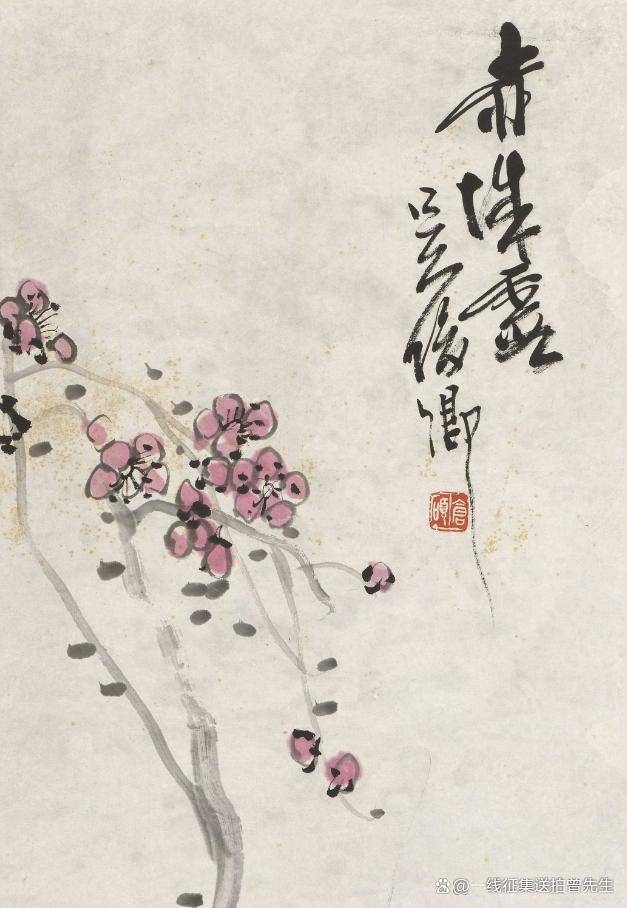 赤城霞
吳俊卿
倉碩
@一线征集送拍曾先生